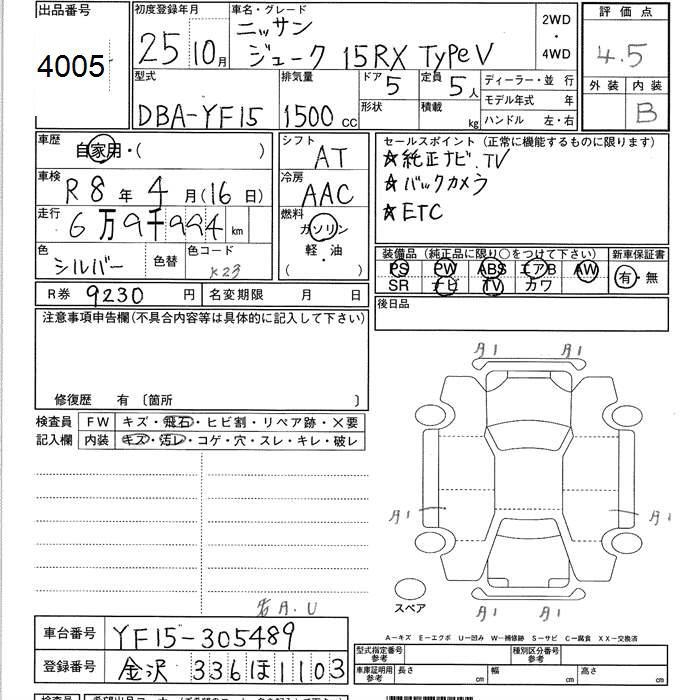 出品番号
4005
初度登録年月
25 10月
車名・グレード
ニッサン
ジューク 15RX TypeV
2WD
・
4WD
評価点
4.5
外装 内装
B
型式
DBA-YF15
排気量
1500 CC
ドア 5
形状
定員 5人
積載 kg
ディーラー・並 行
モデル年式 年
ハンドル 左・右
車歴
自家用・( )
車検
R8年 4月(16日)
走行
6万9千994 km
色
シルバー
色替
色コード
K23
シフト
AT
冷房
AAC
燃料
ガソリン
軽・油
( )
セールスポイント (正常に機能するものに限ります)
☆純正ナビ.TV
☆バックカメラ
☆ETC
装備品 (純正品に限り○をつけて下さい)
PS PW ABS エアB AW
SR ナビ TV カワ
新車保証書
有・無
R券 9230 円
名変期限 月 日
後日品
注意事項申告欄(不具合内容等は具体的に記入して下さい)
修復歴 有 〔箇所 〕
検査員
記入欄
FW キズ・飛石・ヒビ割・リペア跡・×要
内装 キズ・汚レ・コゲ・穴・スレ・キレ・破レ
A1 A1
A1 A1
A1 A1
スペア
A-キズ E-エクボ U-凹み W-補修跡 S-サビ C-腐食 XX-交換済
車台番号 YF15-305489
登録番号 金沢 336 ほ 1103
型式指定番号
参考
種別区分番号
参考
車庫証明用
参考
長さ cm 幅 cm 高さ cm